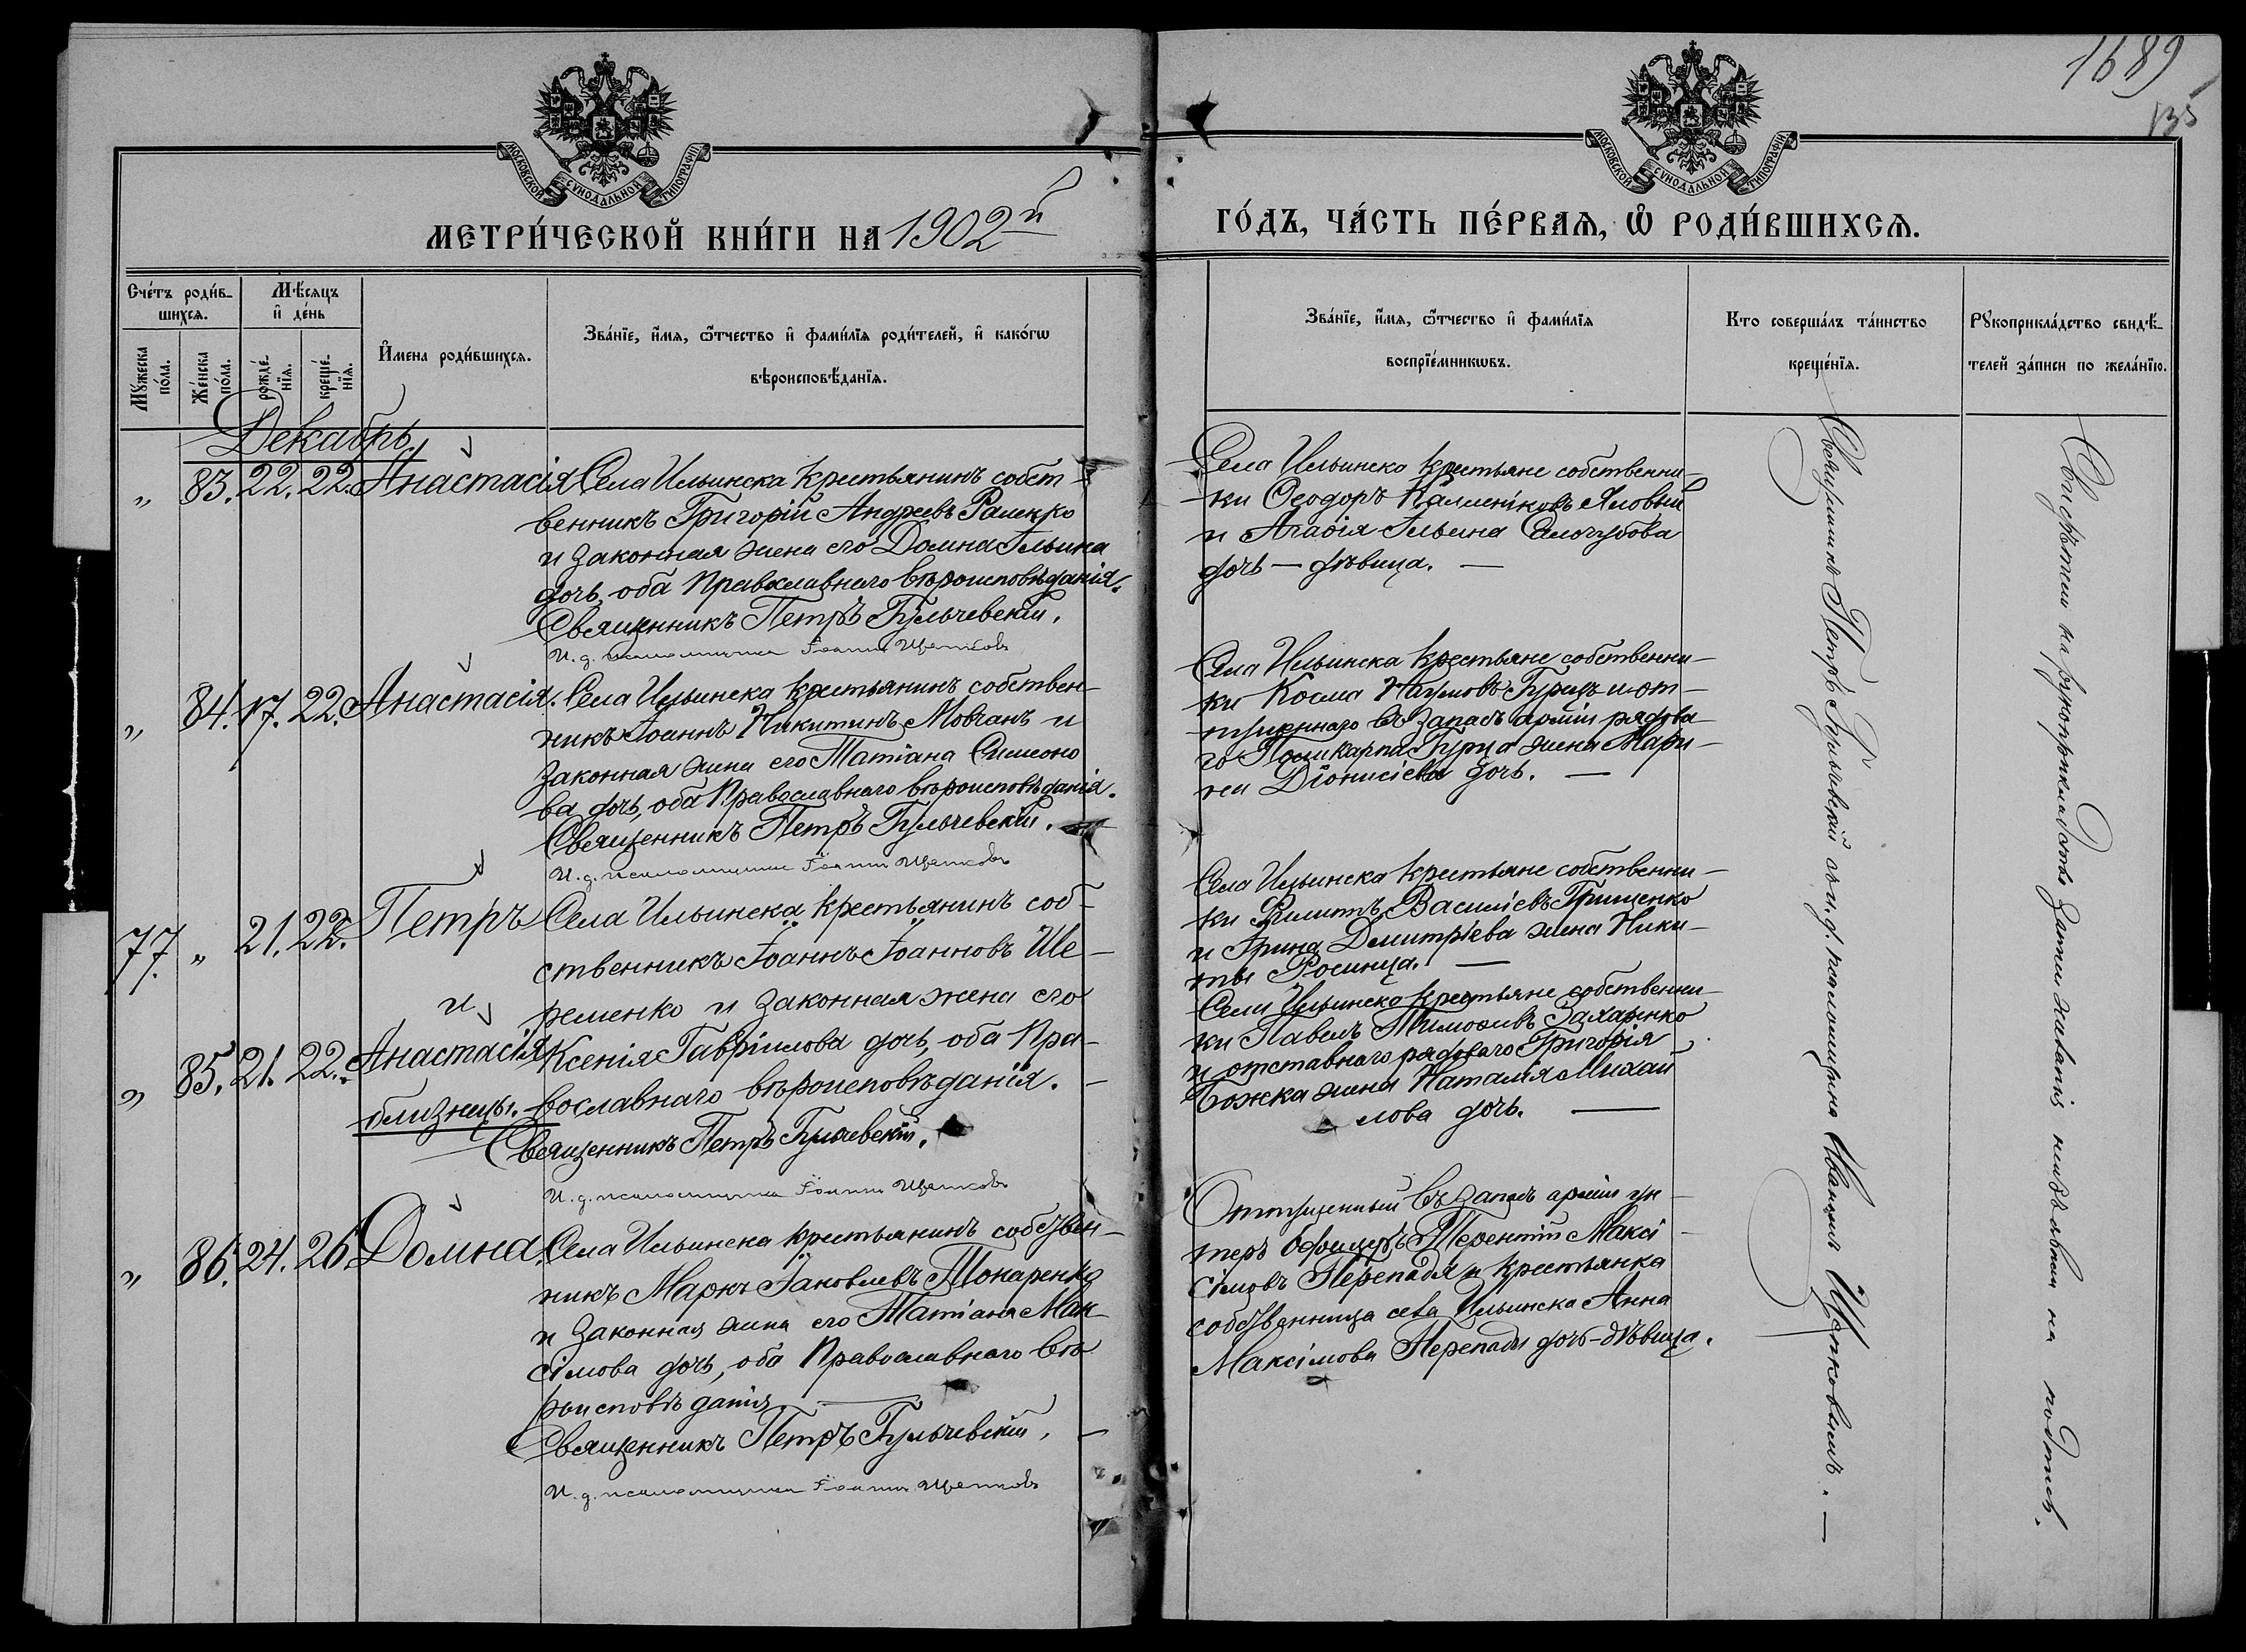 1689
135
МОСКОВСКОЙ СѴНОДАЛЬНОЙ ТИПОГРАФІИ
МОСКОВСКОЙ СѴНОДАЛЬНОЙ ТИПОГРАФІИ
МЕТРИ́ЧЕСКОЙ КНИ́ГИ НА 1902й
ГО́ДЪ, ЧА́СТЬ ПЕ́РВАѦ, Ѡ РОДИ́ВШИХСѦ.
Сче́тъ роди́в-
шихсѧ.
Мꙋжеска по́ла.
Же́нска по́ла.
Мѣ́сяцъ и де́нь
рожде́-
нїѧ.
креще́-
нїѧ.
Имена роди́вшихсѧ.
Зва́нїе, и́мѧ, ѻ́тчество и фами́лїѧ роди́телей, и како́гѡ
вѣроисповѣ́данїѧ.
Зва́нїе, и́мѧ, ѻ́тчество и фами́лїѧ
воспрїе́мникѡвъ.
Кто соверша́лъ та́инство
креще́нїѧ.
Рꙋкоприкла́дство свидѣ́-
телей за́писи по жела́нїю.
Декабрь.
„ 83. 22. 22. Анастасія
Села Ильинска крестьянинъ собст-
венникъ Григорій Андреевъ Раменко
и законная жена его Домна Ильина
дочь, оба Православнаго вѣроисповѣданія.
Священникъ Петръ Бульчевскій.
И. д. псаломщика Іоаннъ Щетковъ
Села Ильинска крестьяне собственни-
ки Ѳеодоръ Калленіковъ Яловый
и Агаѳія Ильина Самогубова
дочь – дѣвица. —
„ 84. 17. 22. Анастасія.
Села Ильинска крестьянинъ собствен-
никъ Іоаннъ Никитинъ Мовчанъ и
законная жена его Татіана Симеоно
ва дочь, оба Православнаго вѣроисповѣданія.
Священникъ Петръ Бульчевскій.
И. д. псаломщика Іоаннъ Щетковъ
Села Ильинска крестьяне собственни-
ки Косма Наумовъ Бурцъ и от-
пущеннаго въ запасъ арміи рядова-
го Поликарпа Бурца жена Мари-
на Діонисіева дочь. —
77. „ 21. 22. Петръ
и
„ 85. 21. 22. Анастасія
близнецы.
Села Ильинска крестьянинъ соб-
ственникъ Іоаннъ Іоанновъ Ше-
ременко и законная жена его
Ксенія Гавріилова дочь, оба Пра-
вославнаго вѣроисповѣданія. —
Священникъ Петръ Бульчевскій.
И. д. псаломщика Іоаннъ Щетковъ
Села Ильинска крестьяне собственни-
ки Филиппъ Василіевъ Грищенко
и Ирина Димитріева жена Ники-
ты Росинца. —
Села Ильинска крестьяне собственни-
ки Павелъ Тимоѳеевъ Захаренко
и отставнаго рядоваго Григорія
Божка жена Наталія Михаи
лова дочь. —
„ 86. 24. 26. Домна.
Села Ильинска крестьянинъ собствен-
никъ Маркъ Іаковлевъ Токаренко
и законная жена его Татіана Мак-
сімова дочь, оба Православнаго вѣ-
роисповѣданія —
Священникъ Петръ Бульчевскій. —
И. д. псаломщика Іоаннъ Щетковъ
Отпущенный въ запасъ арміи ун-
теръ Офицеръ Терентій Максі-
сімовъ Перепадя и крестьянка
собственница села Ильинска Анна
Максімова Перепадя дочь-дѣвица.
Священникъ Петръ Бульчевскій съ и. д. псаломщика Иваномъ Щетковымъ. —
Свидѣтели на рукоприкладство записи желанія неизъявили на подпись.